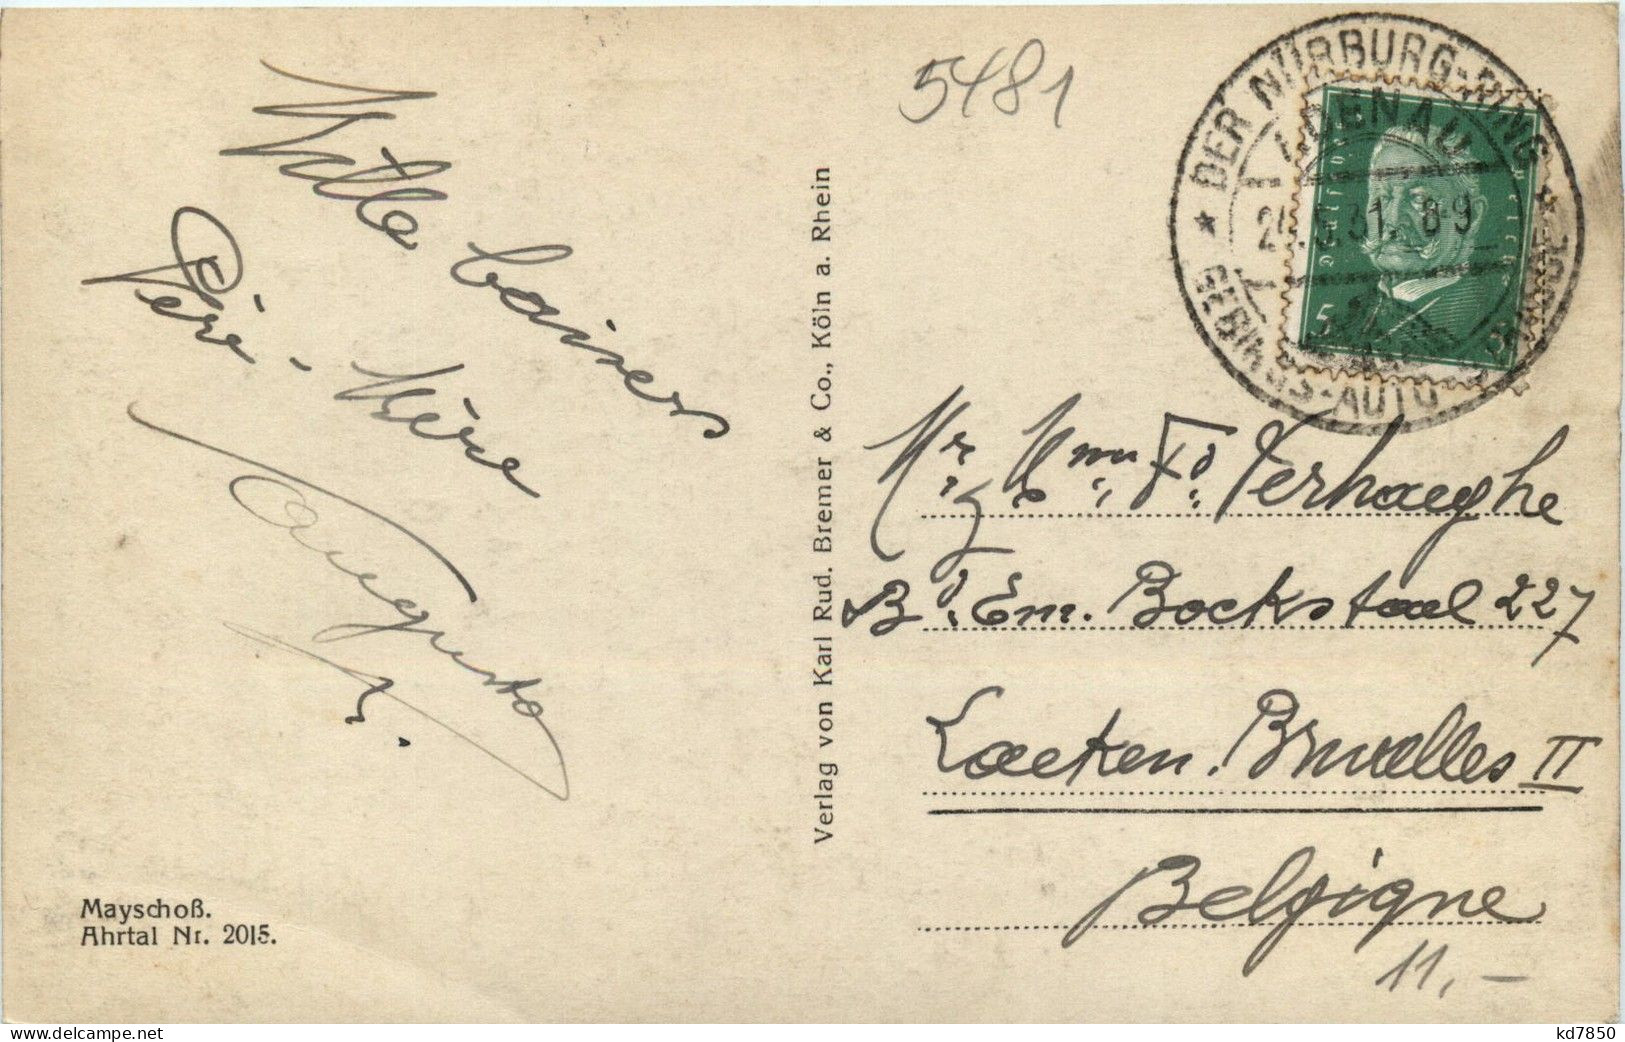 5481
DER NÜRBURG-RING
ADENAU
5.31. 8-9
GEBIRGS-AUTO
5
Mille baisers
Père-Mère
Auguste
Verlag von Karl Rud. Bremer & Co., Köln a. Rhein
Mr & Mme Fd. Verhaeghe
Bd. Em. Bockstael 227
Laeken. Bruxelles II
Belgique
11,-
Mayschoß.
Ahrtal Nr. 2015.
kd7850